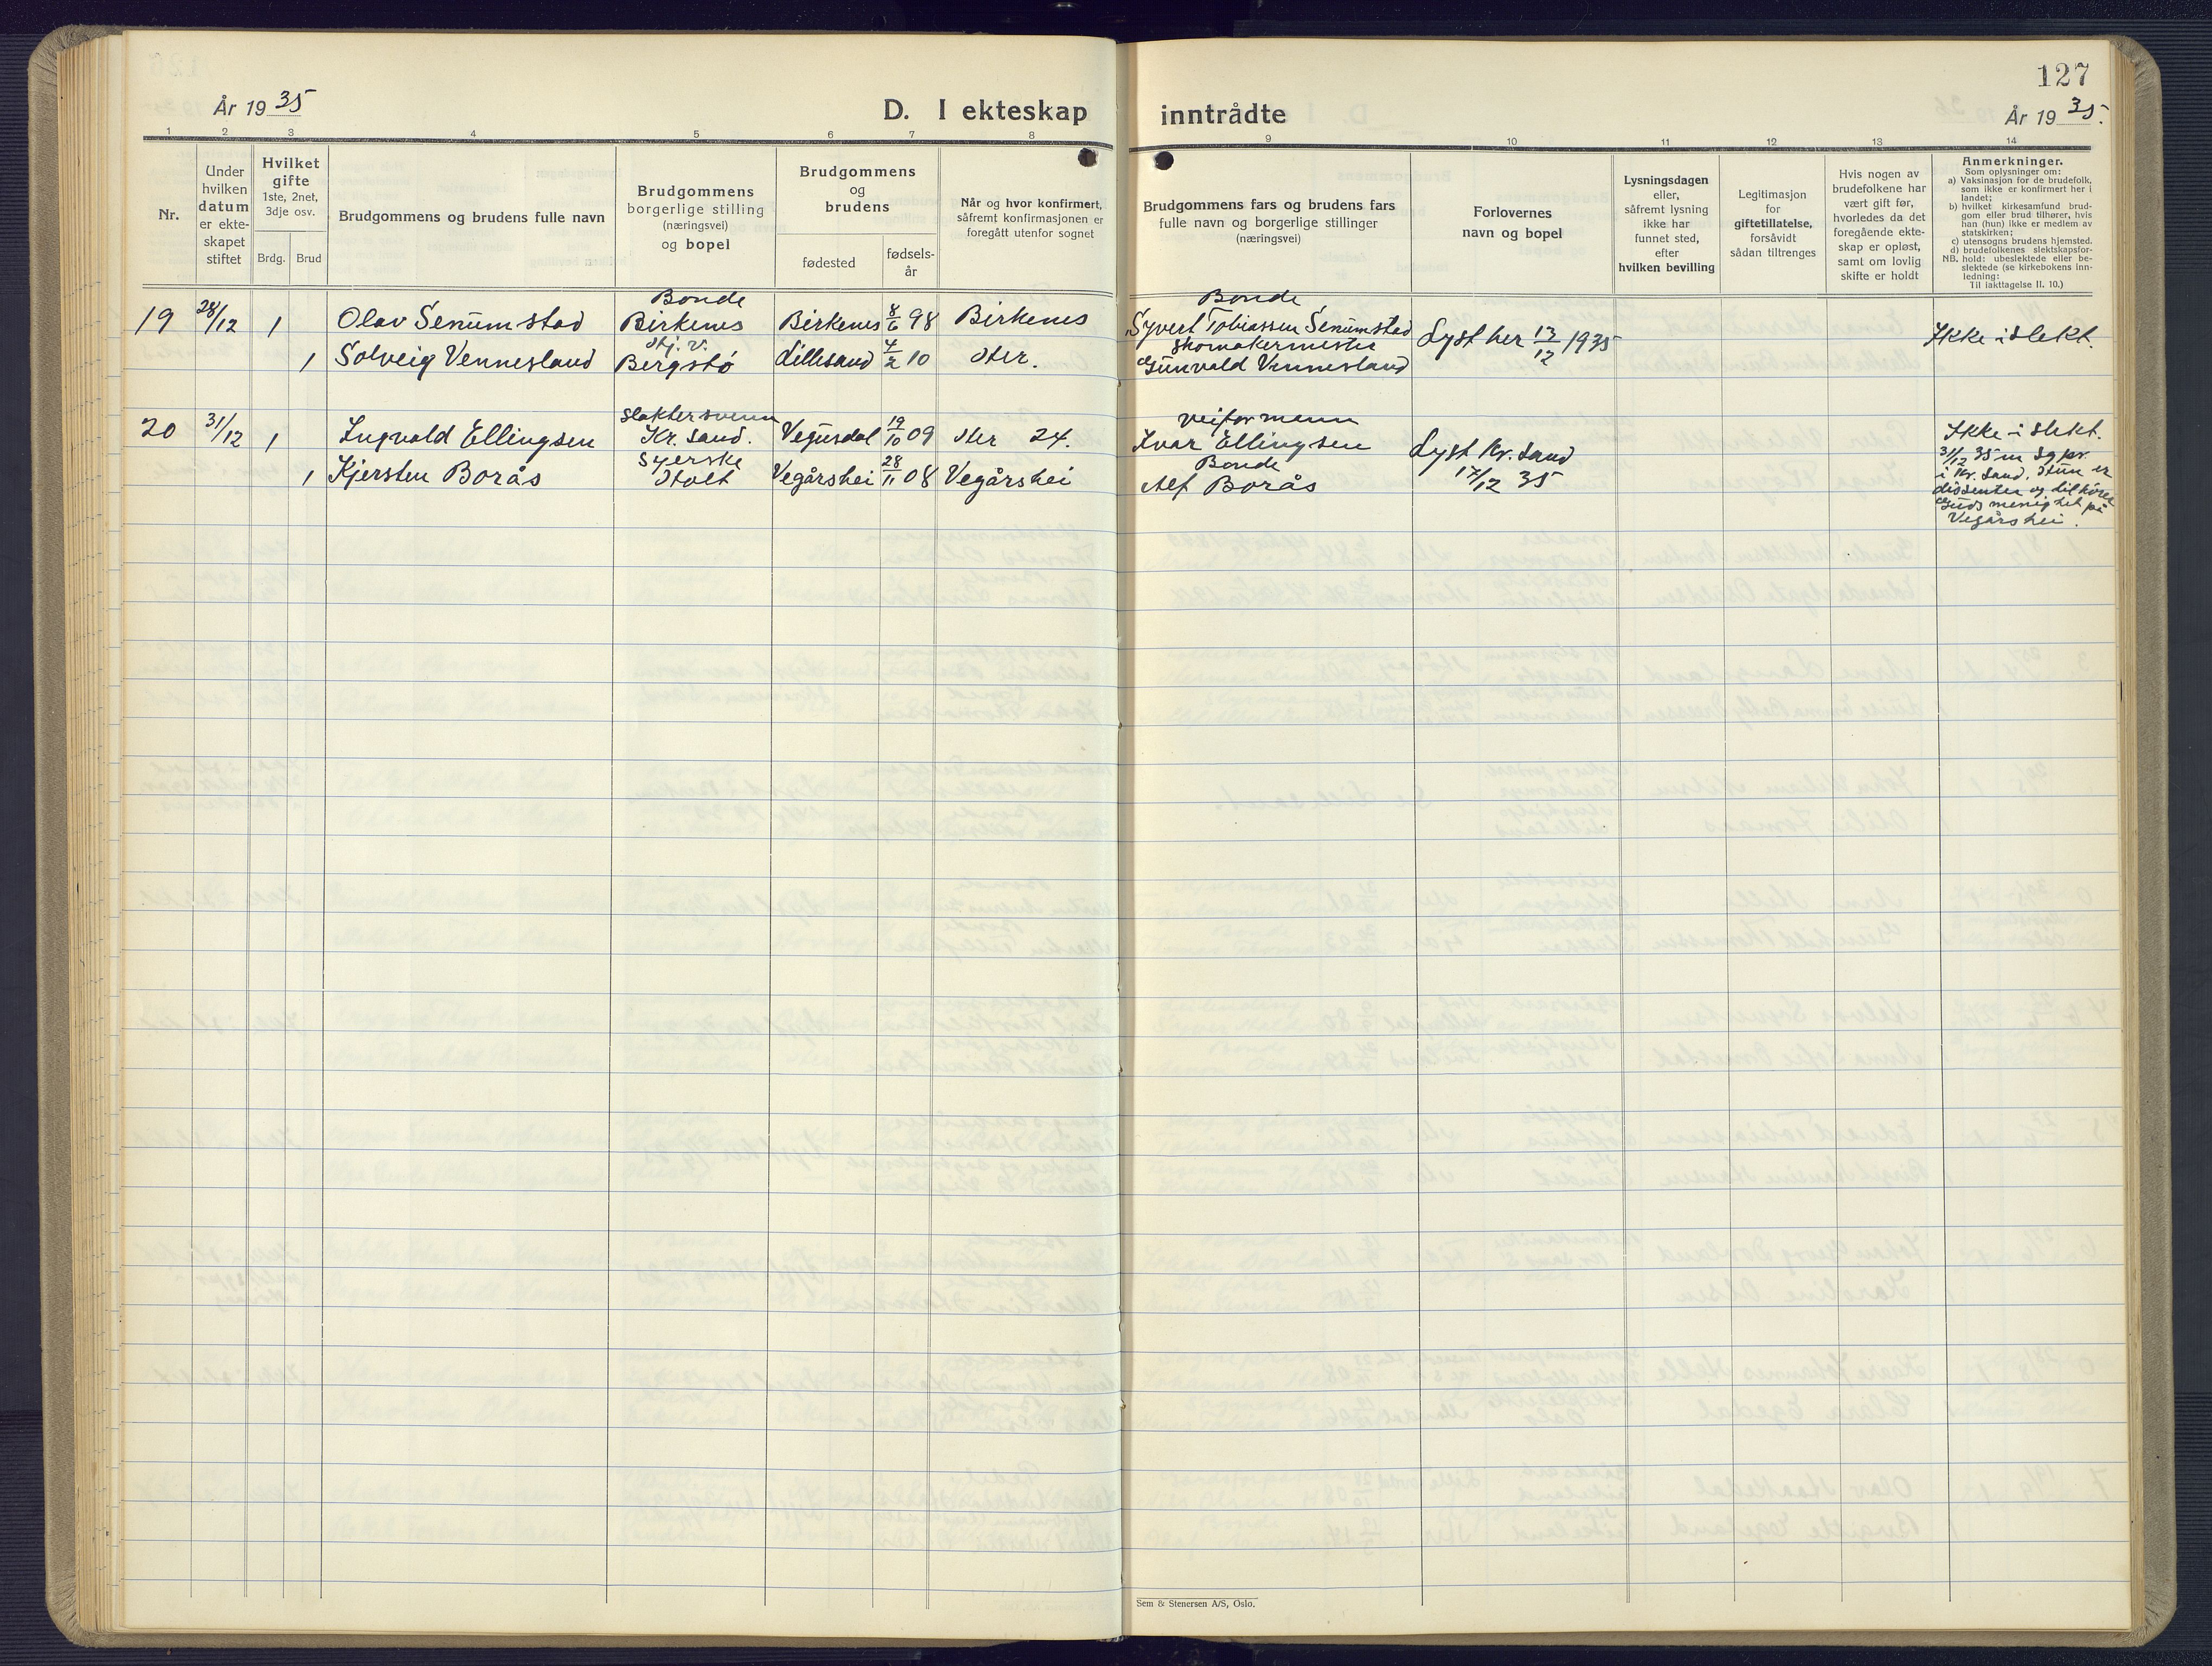 127
År 1935
D. I ekteskap inntrådte
År 1935.
1 2 3 4 5 6 7 8 9 10 11 12 13 14
Nr.
Under
hvilken
datum
er ekte-
skapet
stiftet
Hvilket
gifte
1ste, 2net,
3dje osv.
Brdg. Brud
Brudgommens og brudens fulle navn
Brudgommens
borgerlige stilling
(næringsvei)
og bopel
Brudgommens
og
brudens
fødested
fødsels-
år
Når og hvor konfirmert,
såfremt konfirmasjonen er
foregått utenfor sognet
Brudgommens fars og brudens fars
fulle navn og borgerlige stillinger
(næringsvei)
Forlovernes
navn og bopel
Lysningsdagen
eller,
såfremt lysning
ikke har
funnet sted,
efter
hvilken bevilling
Legitimasjon
for
giftetillatelse,
forsåvidt
sådan tiltrenges
Hvis nogen av
brudefolkene har
vært gift før,
hvorledes da det
foregående ekte-
skap er opløst,
samt om lovlig
skifte er holdt
Anmerkninger.
Som oplysninger om:
a) Vaksinasjon for de brudefolk,
som ikke er konfirmert her i
landet;
b) hvilket kirkesamfund brud-
gom eller brud tilhører, hvis
han (hun) ikke er medlem av
statskirken;
c) utensogns brudens hjemsted.
d) brudefolkenes slektskapsfor-
NB. hold: ubeslektede eller be-
slektede (se kirkebokens inn-
ledning:
Til iakttagelse II. 10.)
Bonde Bonde
19 28/12 1 Olav Senumstad Birkenes Birkenes 8/6 98 Birkenes Syvert Tobiassen Senumstad Lyst her 13/12 1935 Ikke i slekt.
Hj. v. Skomakermester
1 Solveig Vennesland Bergstø Lillesand 4/2 10 Her. Gunvald Vennesland
Slaktersvenn Veiformann
20 31/12 1 Ingvald Ellingsen Kr. sand. Vegusdal 19/10 09 Her 24. Ivar Ellingsen Lyst Kr. Sand Ikke i slekt.
Syerske Bonde
1 Kjersten Borås Holt Vegårshei 28/11 08 Vegårshei Alf Borås 17/12 35
31/12 35 m sg pr.
i Kr. Sand. Hun er
dissenter og tilhører
Guds menighet på
Vegårshei.
Sem & Stenersen A/S, Oslo.